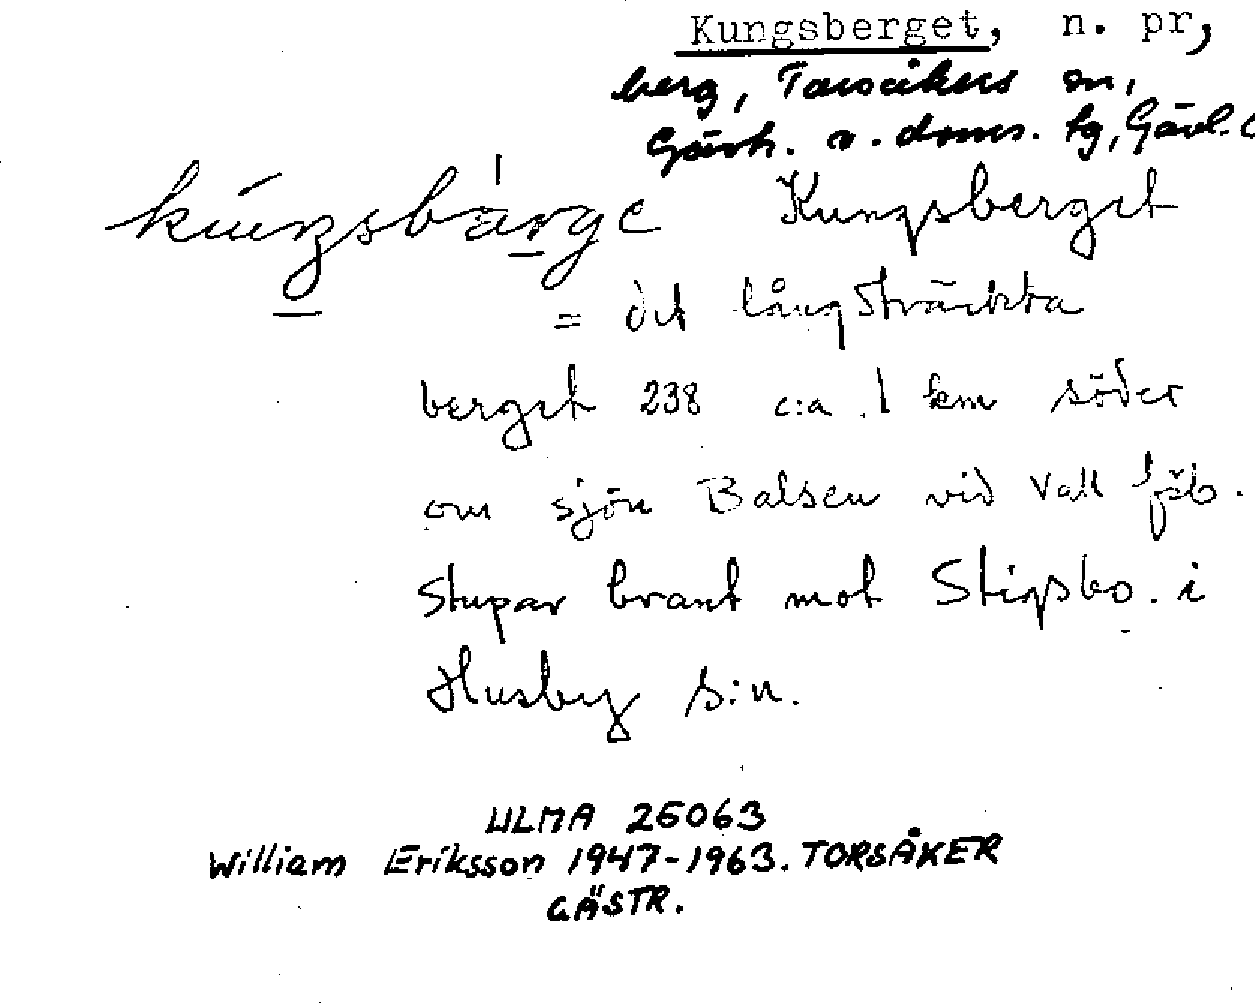 Kungsberget, n. pr,
berg, Torsåkers sn,
Gästr. v. doms. tg, Gävl. l
kúŋsbárge Kungsberget
= det långsträckta
berget 238 c:a 1 km söder
om sjön Balsen vid Vall fäb.
stupar brant mot Stigsbo. i
Husby s:n.
ULMA 26063
William Eriksson 1947-1963. TORSÅKER
GÄSTR.